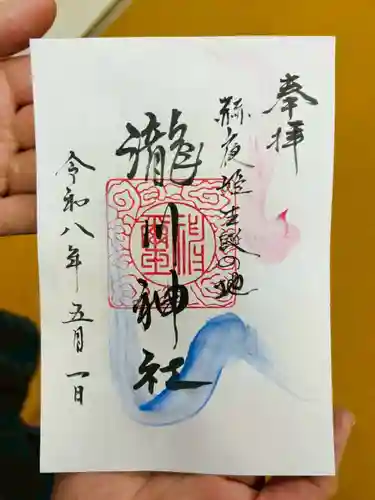 奉拝
赫夜姫生誕の地
瀧川神社
令和八年 五月一日